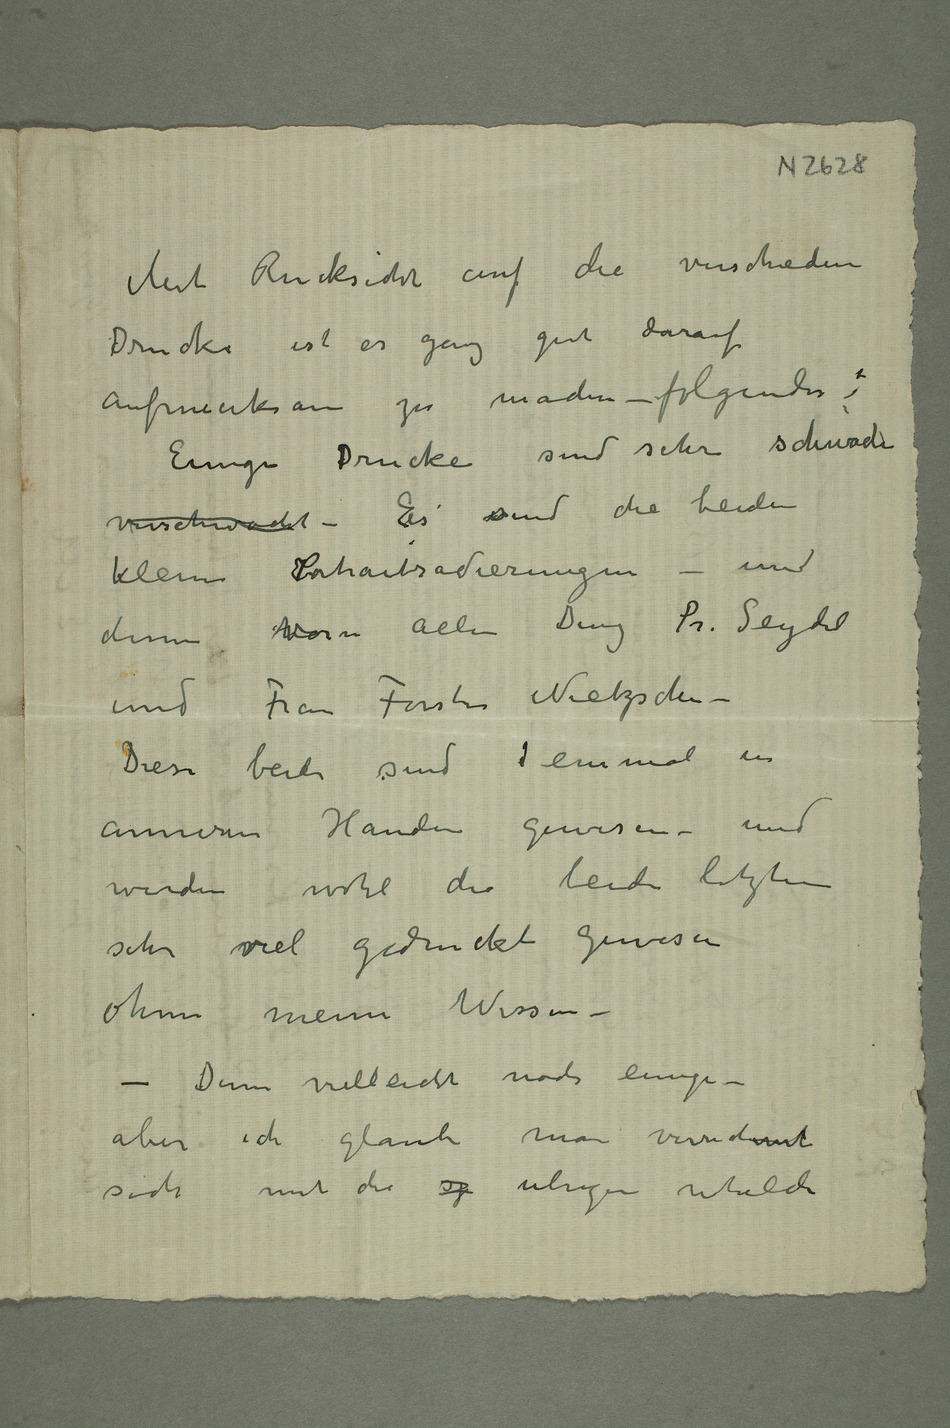 N 2628
Mit Rucksicht auf die verschieden
Drucke ist es ganz gut darauf
aufmerksam zu machen – folgendes :
Einige Drucke sind sehr schwach
verschwacht – Es sind die beiden
kleine Portraitsradierungen – und
denn vor allen Ding Pr. Seydel
und Frau Forster Nietzsche –
Diese beide sind 1 einmal in
anneren Handen gewesen – und
werden wohl die beide letzten
sehr viel gedruckt gewesen
ohne meine Wissen –
– Denn vielleicht noch einige –
aber ich glaube man
sich mit die ubrigen